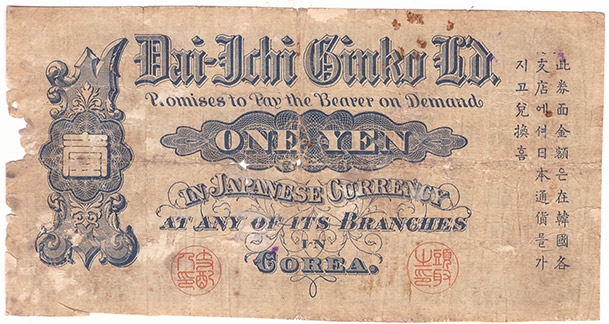 Dai-Ichi Ginko L'd.
Promises to Pay the Bearer on Demand
ONE YEN
壹
IN JAPANESE CURRENCY
AT ANY OF ITS BRANCHES
IN
COREA.
此券面金額은在韓國各
支店에셔日本通貨를가
지고兌換홈
頭取之印